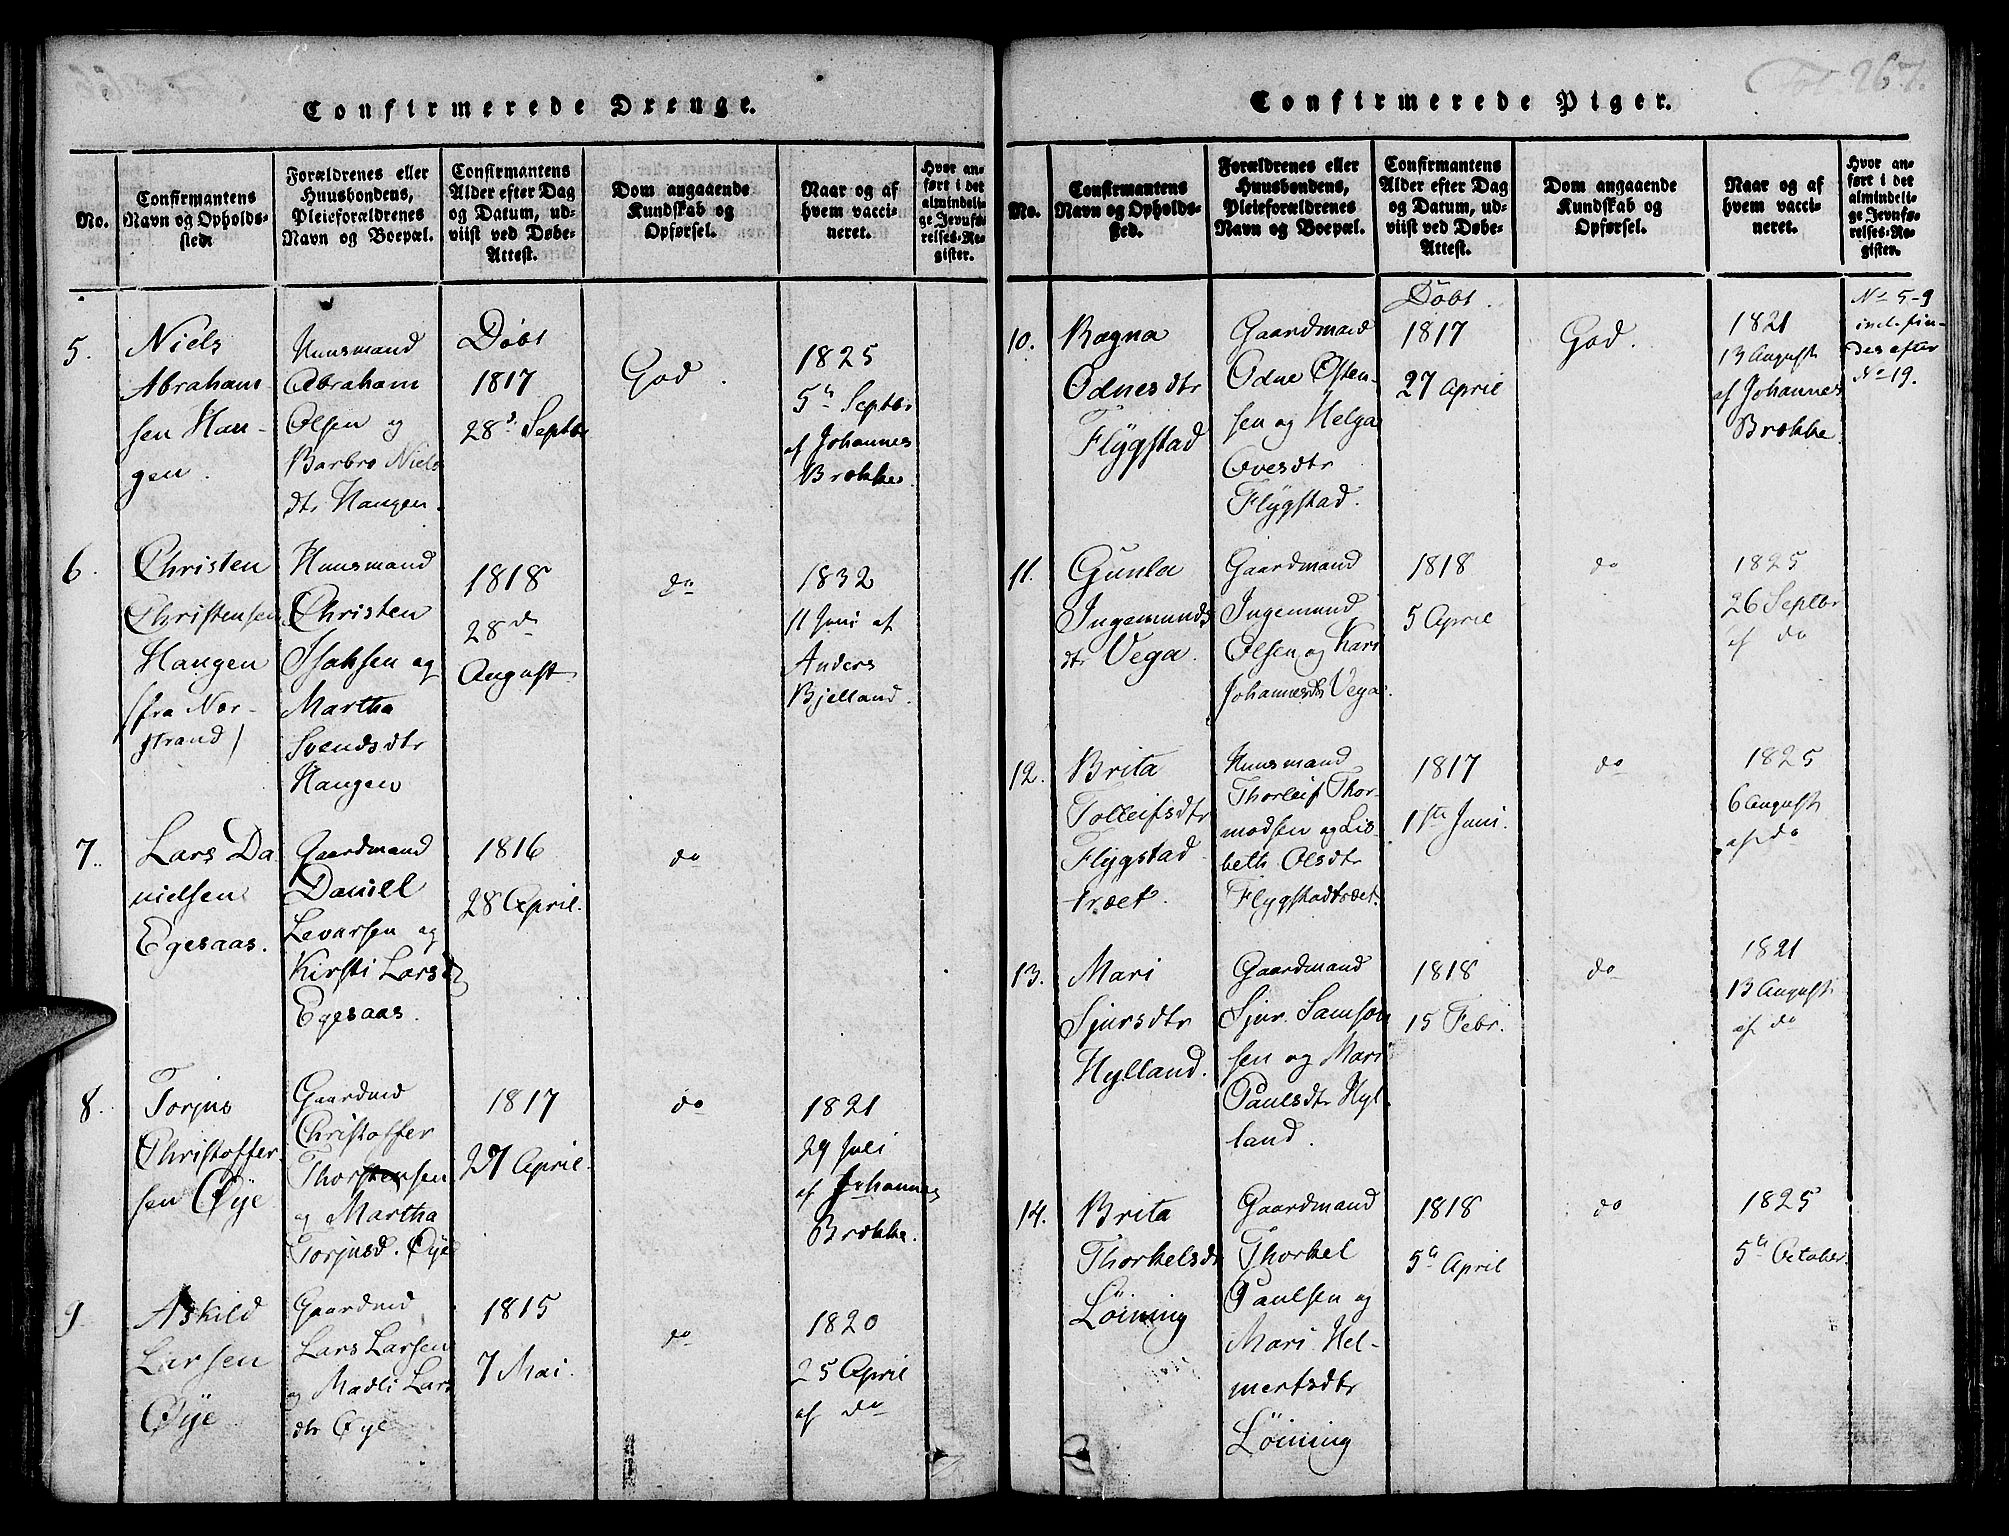 Confirmerede Drenge.
No.
Confirmantens
Navn og Opholds-
sted.
Forældrenes eller
Huusbondens,
Pleieforældrenes
Navn og Boepæl.
Confirmantens
Alder efter Dag
og Datum, ud-
viist ved Døbe-
Attest.
Dom angaaende
Kundskab og
Opførsel.
Naar og af
hvem vacci-
neret.
Hvor an-
ført i det
almindeli-
ge Jevnfø-
relses-Re-
gister.
5.
Niels
Abraham-
sen Hau-
gen.
Huusmand
Abraham
Olsen og
Barbro Niels
dtr Haugen.
Døbt
1817
28de Septbr
God.
1825
5te Septbr
af Johannes
Brække.
6.
Christen
Christensen
Haugen
(fra Nær-
strand)
Huusmand
Christen
Isaksen og
Martha
Svendsdtr
Haugen
1818
28de
August
do
1832
11 Juni af
Anders
Bjelland.
7.
Lars Da
nielsen
Egesaas.
Gaardmand
Daniel
Levarsen og
Kirsti Larsd
Egesaas.
1816
28 April.
do
8.
Torjus
Christoffer-
sen Øye
Gaardmd
Christoffer
Thorstensen
og Martha
Torjusd. Øye
1817
27 April.
do
1821
29 Juli
af Johannes
Brække.
9
Askild
Larsen
Øye
Gaardmd
Lars Larsen
og Madli Lars
dtr Øye
1815
7 Mai.
do
1820
25 April
af do
Fol 267.
Confirmerede Piger.
No.
Confirmantens
Navn og Opholds-
sted.
Forældrenes eller
Huusbondens,
Pleieforældrenes
Navn og Boepæl.
Confirmantens
Alder efter Dag
og Datum, ud-
viist ved Døbe-
Attest.
Dom angaaende
Kundskab og
Opførsel.
Naar og af
hvem vacci-
neret.
Hvor an-
ført i det
almindeli-
ge Jevnfø-
relses-Re-
gister.
10.
Ragna
Odnesdtr
Flygstad
Gaardmand
Odne Østen-
sen og Helga
Avesdtr
Flygstad.
Døbt.
1817
27 April
God.
1821
13 August
af Johannes
Brække.
No 5-9
incl. fin-
des efter
No 19.
11.
Gunla
Ingemunds
dtr Vega.
Gaardmand
Ingemund
Olsen og Kari
Johannesdtr Vega.
1818
5 April
do
1825
26 Septbr
af do
12.
Brita
Tolleifsdtr
Flygstad
træet.
Huusmand
Thorleif Thor-
modsen og Lis-
beth Olsdtr
Flygstadtræet.
1817
1ste Juni.
do
1825
6 August
af do
13.
Mari
Sjursdtr
Hylland.
Gaardmand
Sjur Samson
sen og Mari
Paulsdtr Hyl-
land.
1818
15 Febr.
do
1821
13 August
af do
14.
Brita
Thorkelsdr
Løining
Gaardmand
Thorkel
Paulsen og
Mari Hel-
mertsdtr
Løining
1818
5te April
do
1825
5te October.